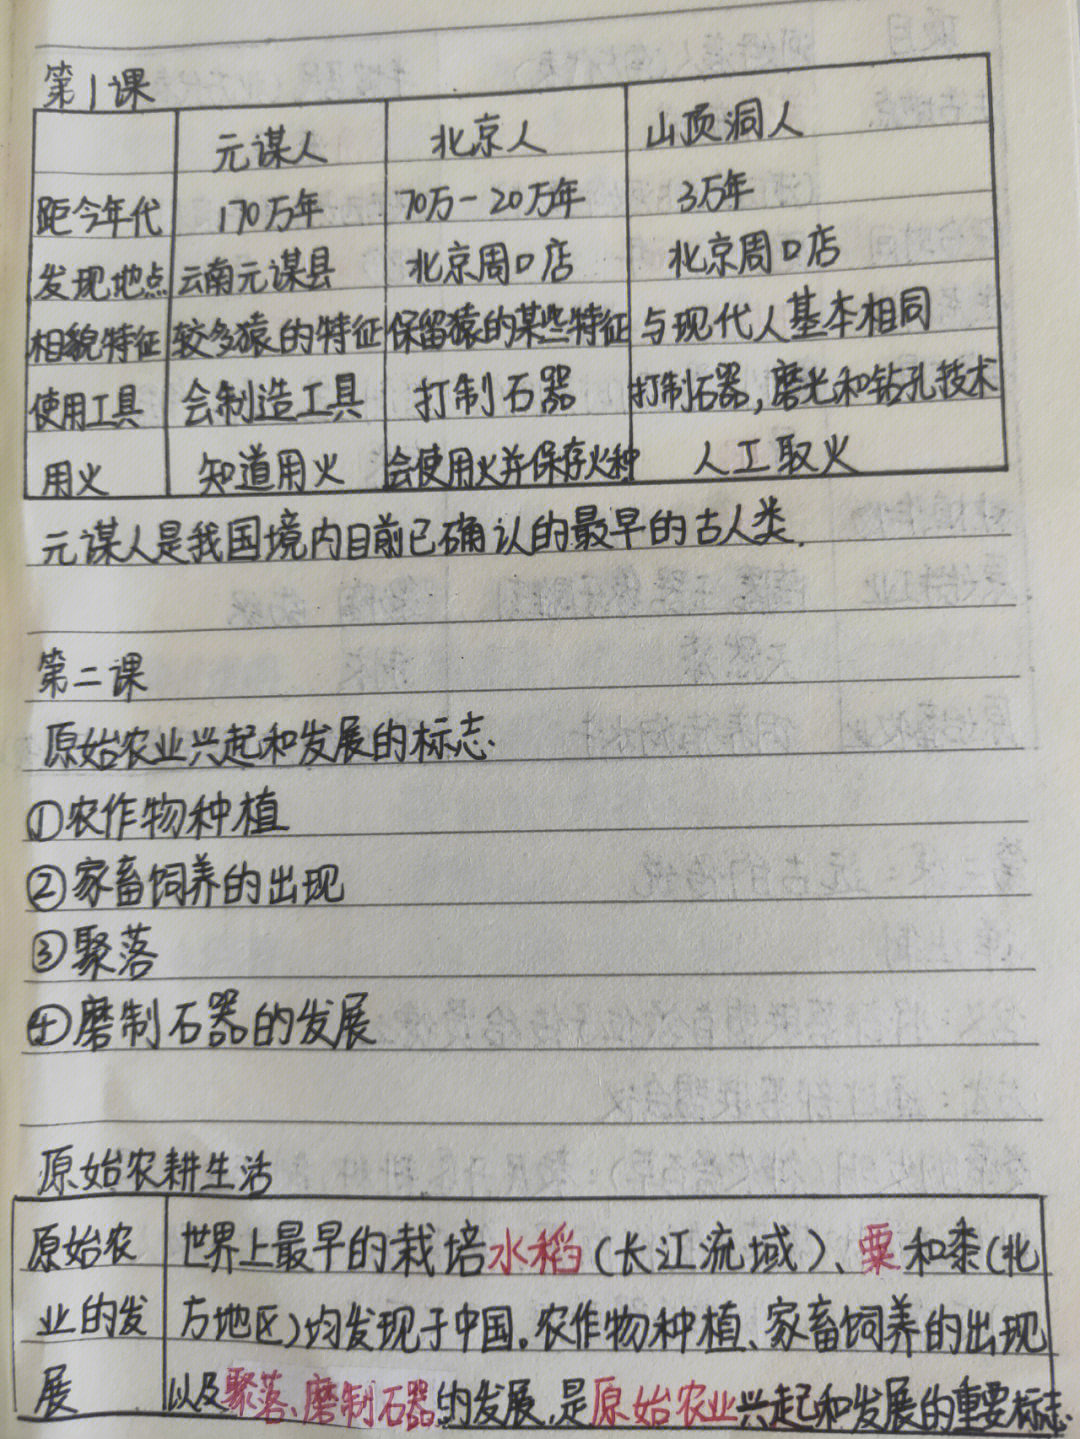 第1课
元谋人 北京人 山顶洞人
距今年代 170万年 70万-20万年 3万年
发现地点 云南元谋县 北京周口店 北京周口店
相貌特征 较多猿的特征 保留猿的某些特征 与现代人基本相同
使用工具 会制造工具 打制石器 打制石器,磨光和钻孔技术
用火 知道用火 会使用火并保存火种 人工取火
元谋人是我国境内目前已确认的最早的古人类.
第二课
原始农业兴起和发展的标志.
①农作物种植
②家畜饲养的出现
③聚落
④磨制石器的发展
原始农耕生活
原始农 世界上最早的栽培水稻(长江流域)、粟和黍(北
业的发 方地区)均发现于中国。农作物种植、家畜饲养的出现
展 以及聚落、磨制石器的发展,是原始农业兴起和发展的重要标志.